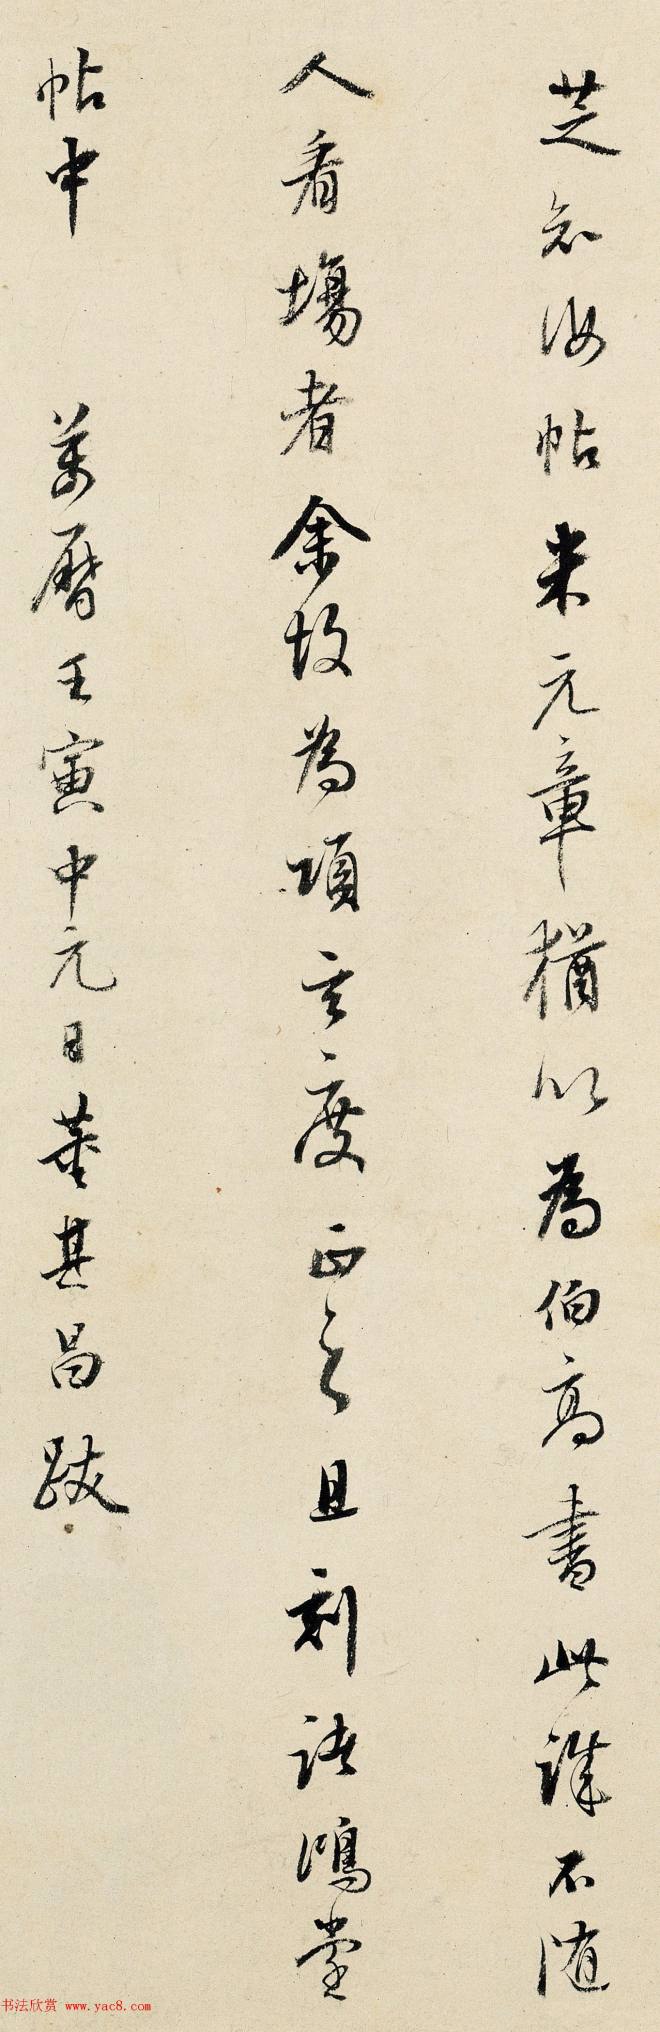 芝知汝帖米元章猶以為伯高書此誠不隨
人看場者余故為項玄度正之且刻諸鴻堂
帖中 萬曆壬寅中元日董其昌跋
书法欣赏 www.yac8.com